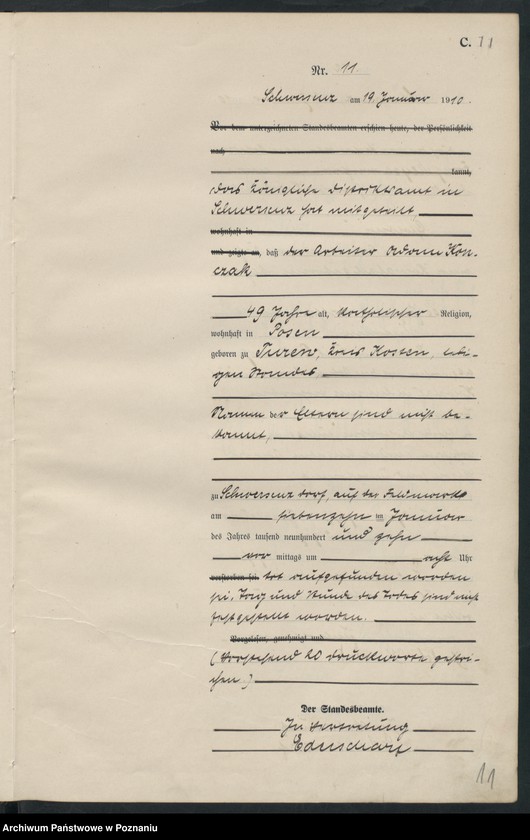 C. 11
Nr. 11.
Schwersenz am 19. Januar 1910.
Vor dem unterzeichneten Standesbeamten erschien heute, der Persönlichkeit
nach
kannt,
das Königliche Distriktsamt in
Schwersenz hat mitgeteilt
wohnhaft in
und zeigte an, daß der Arbeiter Adam Kon-
czak
49 Jahre alt, katholischer Religion,
wohnhaft in Posen
geboren zu Turew, Kreis Kosten, ledi-
gen Standes
Namen der Eltern sind nicht be-
kannt,
zu Schwersenz dorf, auf der Feldmark
am siebenzehn im Januar
des Jahres tausend neunhundert und zehn
vor mittags um acht Uhr
verstorben sei. tot aufgefunden worden
sei. Tag und Stunde des Todes sind nicht
festgestellt worden.
Vorgelesen, genehmigt und
(Vorstehend 20 Druckworte gestri-
chen.)
Der Standesbeamte.
In Vertretung
11
Archiwum Państwowe w Poznaniu